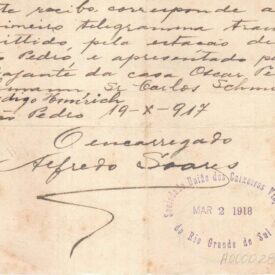 te recibo corresponde a
rimeiro telegramma tran
ittido, pela estação de
o Pedro e apresentado pe
ajante da casa Oscar P
mann Sr Carlos Schm
digo Emirich
ão Pedro 19-X-917
O encarregado
Alfredo Soares
Sociedade União dos Caixeiros
MAR 2 1918
do Rio Grande do Sul